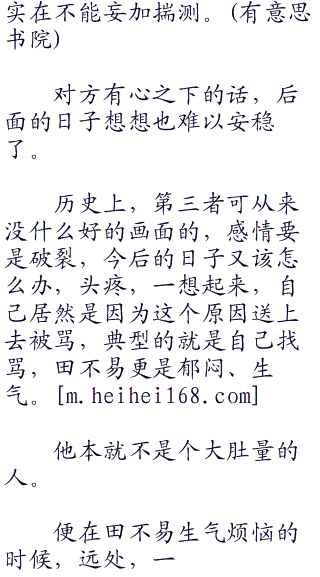 实在不能妄加揣测。(有意思
书院)
对方有心之下的话，后
面的日子想想也难以安稳
了。
历史上，第三者可从来
没什么好的画面的，感情要
是破裂，今后的日子又该怎
么办，头疼，一想起来，自
己居然是因为这个原因送上
去被骂，典型的就是自己找
骂，田不易更是郁闷、生
气。[m.heihei168.com]
他本就不是个大肚量的
人。
便在田不易生气烦恼的
时候，远处，一